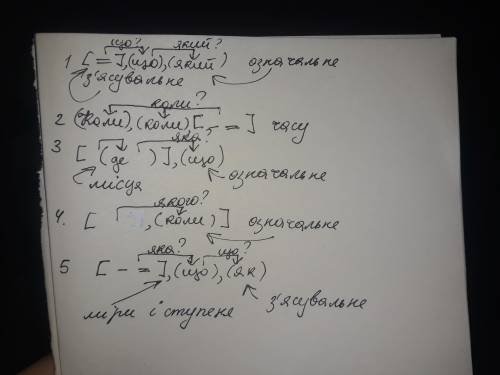 що? який?
1 [ = ], (що), (який) означальне
з'ясувальне
коли?
2 (коли), (коли) [ - = ] часу
яка?
3 [ (де ) ], (що)
місця означальне
якого?
4. [ , (коли) ] означальне
яка? що?
5 [ - = ], (що), (як)
міри і ступене з'ясувальне